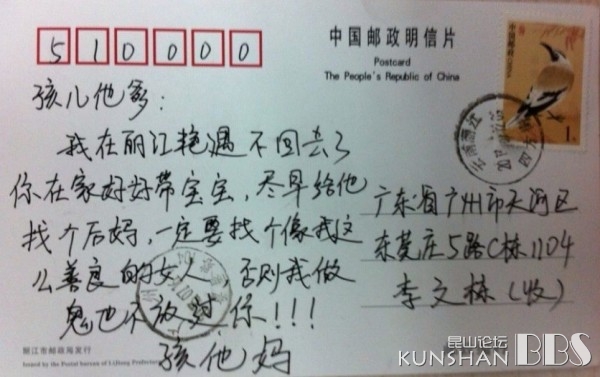 510000
中国邮政明信片
Postcard
The People's Republic of China
中国邮政
孩儿他爹：
我在丽江艳遇不回去了
你在家好好带宝宝，尽早给他
找个后妈，一定要找个像我这
么善良的女人，否则我做
鬼也不放过你！！！
孩他妈
广东省广州市天河区
东莞庄5路C栋1104
李文栋（收）
丽江市邮政局发行
Issued by the Postal bureau of LiJiang Prefecture
昆山论坛
KUNSHAN BBS